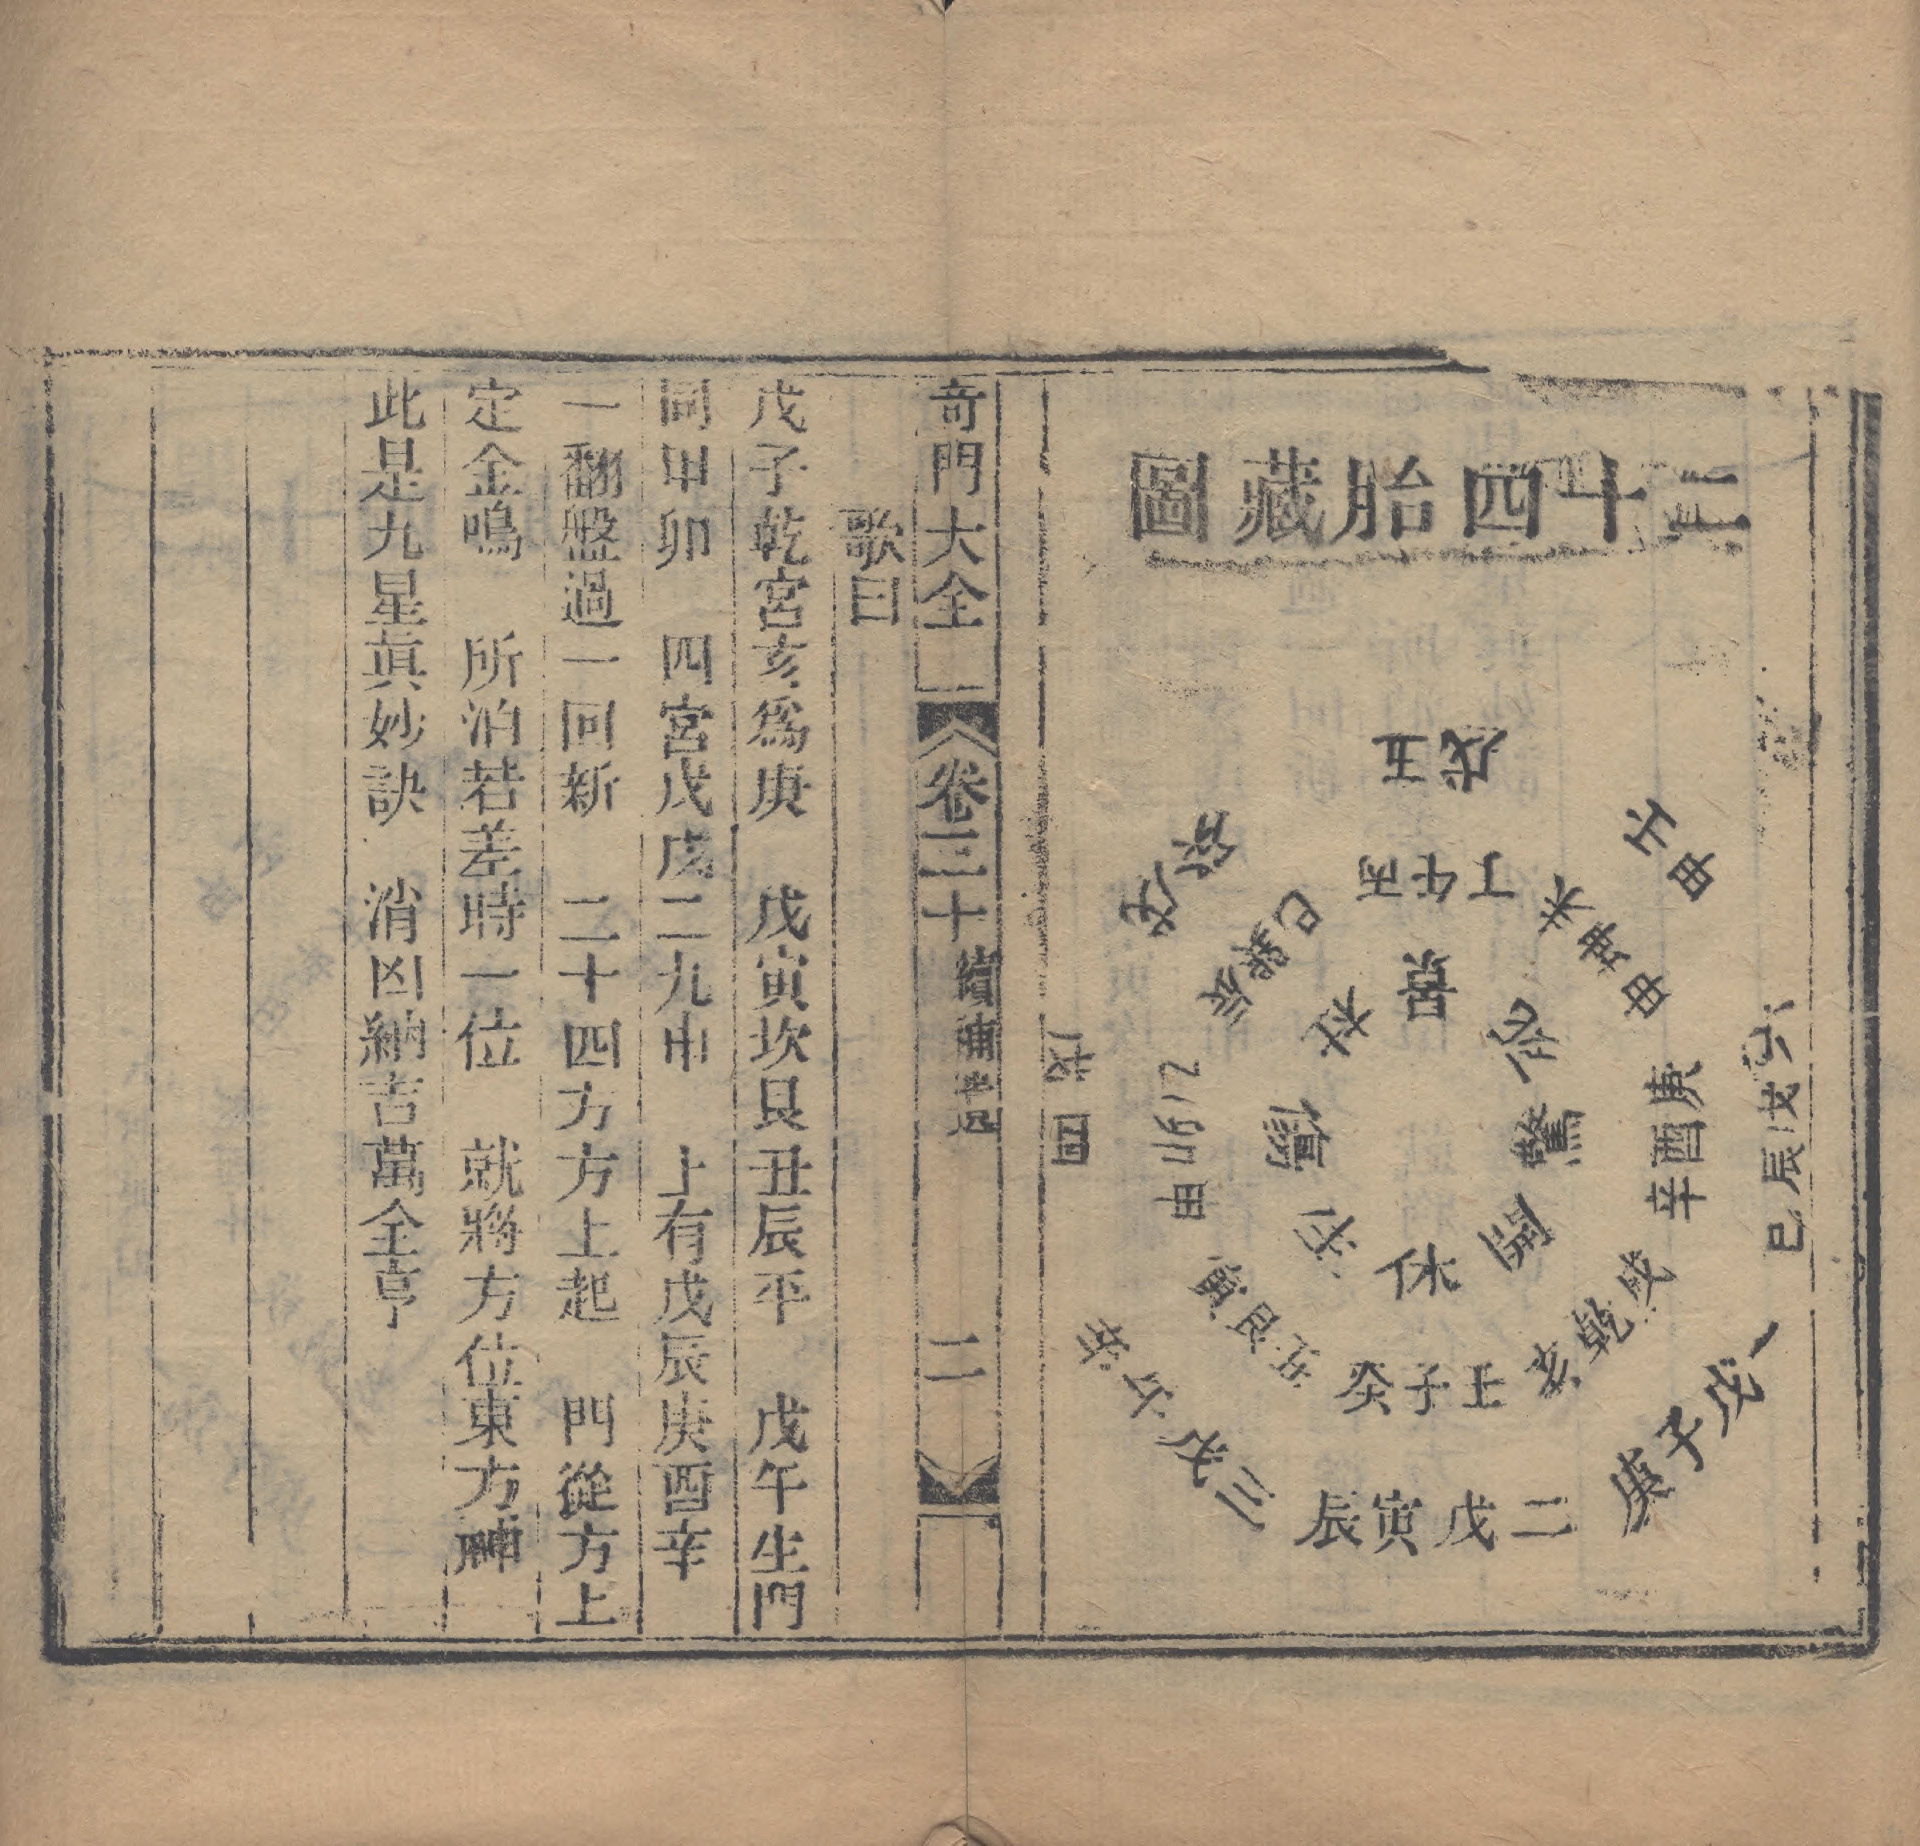 二十四胎藏圖
戊五
丁午丙
未坤申
巳巽辰
景
杜
驚
傷
開
休
庚酉辛
乙卯甲
戊四
戊六
辰巳
戌乾亥
壬子癸
丑艮寅
庚子戊一
二戊寅辰
三戊午
奇門大全
卷三十
續補
二
歌曰
戊子乾宮亥爲庚　戊寅坎艮丑辰平　戊午生門
同甲卯　四宮戊戌二九申　上有戊辰庚酉辛
一翻盤過一回新　二十四方方上起　門從方上
定金鳴　所泊若差時一位　就將方位東方神
此是九星眞妙訣　消凶納吉萬全亨